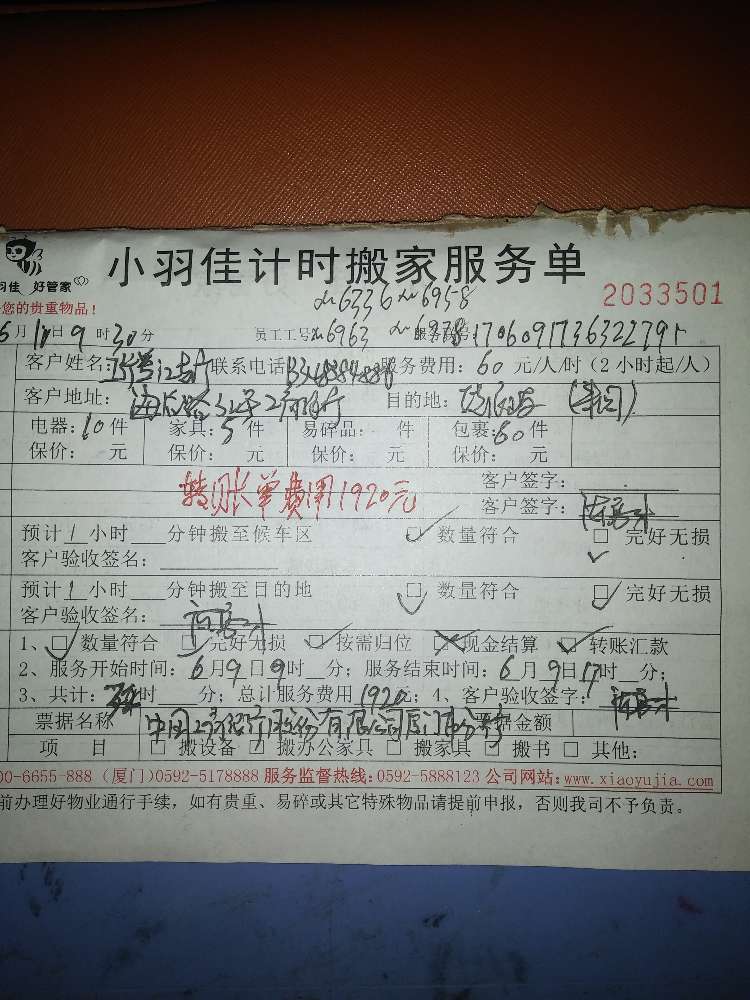 小羽佳计时搬家服务单
羽佳 好管家
2033501
您的贵重物品！
6336 6958
月10日9时30分 员工工号 6963 6938 服务联号 170609173632279
客户姓名： 联系电话 服务费用：60元/人/时（2小时起/人）
客户地址： 目的地：
电器：10件 家具：5件 易碎品： 件 包裹：60件
保价： 元 保价： 元 保价： 元 保价： 元
客户签字：
转账单费用1920元 客户签字：
预计1小时___分钟搬至候车区 □数量符合 □完好无损
客户验收签名：
预计1小时___分钟搬至目的地 □数量符合 □完好无损
客户验收签名：
1、□数量符合 □完好无损 □按需归位 □现金结算 □转账汇款
2、服务开始时间：6月9日9时__分；服务结束时间：6月9日17时__分；
3、共计： 时___分；总计服务费用1920元；4、客户验收签字：
票据名称 中国工商银行股份有限公司厦门市分行 票据金额
项 目 □搬设备 □搬办公家具 □搬家具 □搬书 □其他：
00-6655-888（厦门）0592-5178888 服务监督热线:0592-5888123 公司网站:www.xiaoyujia.com
前办理好物业通行手续，如有贵重、易碎或其它特殊物品请提前申报，否则我司不予负责。